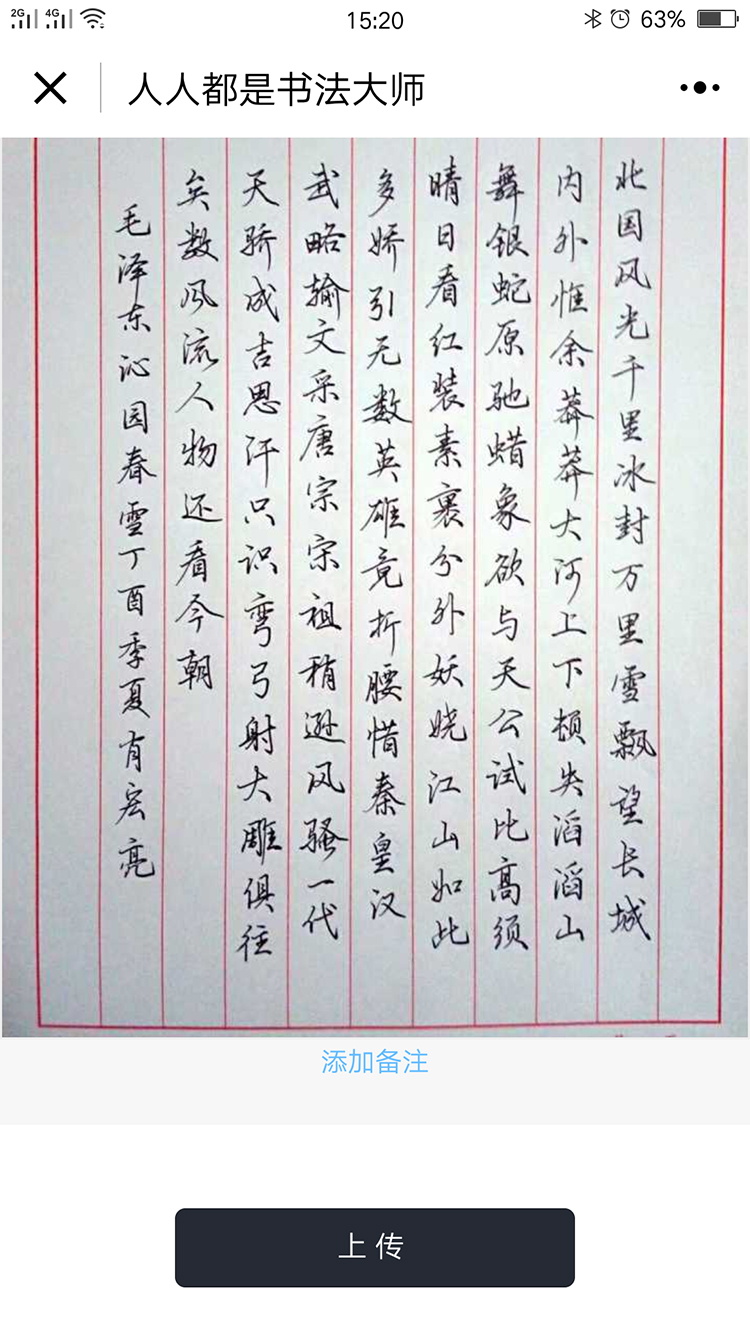 2G 4G 15:20 63%
人人都是书法大师
北国风光千里冰封万里雪飘望长城
内外惟余莽莽大河上下顿失滔滔山
舞银蛇原驰蜡象欲与天公试比高须
晴日看红装素裹分外妖娆江山如此
多娇引无数英雄竞折腰惜秦皇汉
武略输文采唐宗宋祖稍逊风骚一代
天骄成吉思汗只识弯弓射大雕俱往
矣数风流人物还看今朝
毛泽东沁园春雪丁酉季夏有宏亮
添加备注
上传